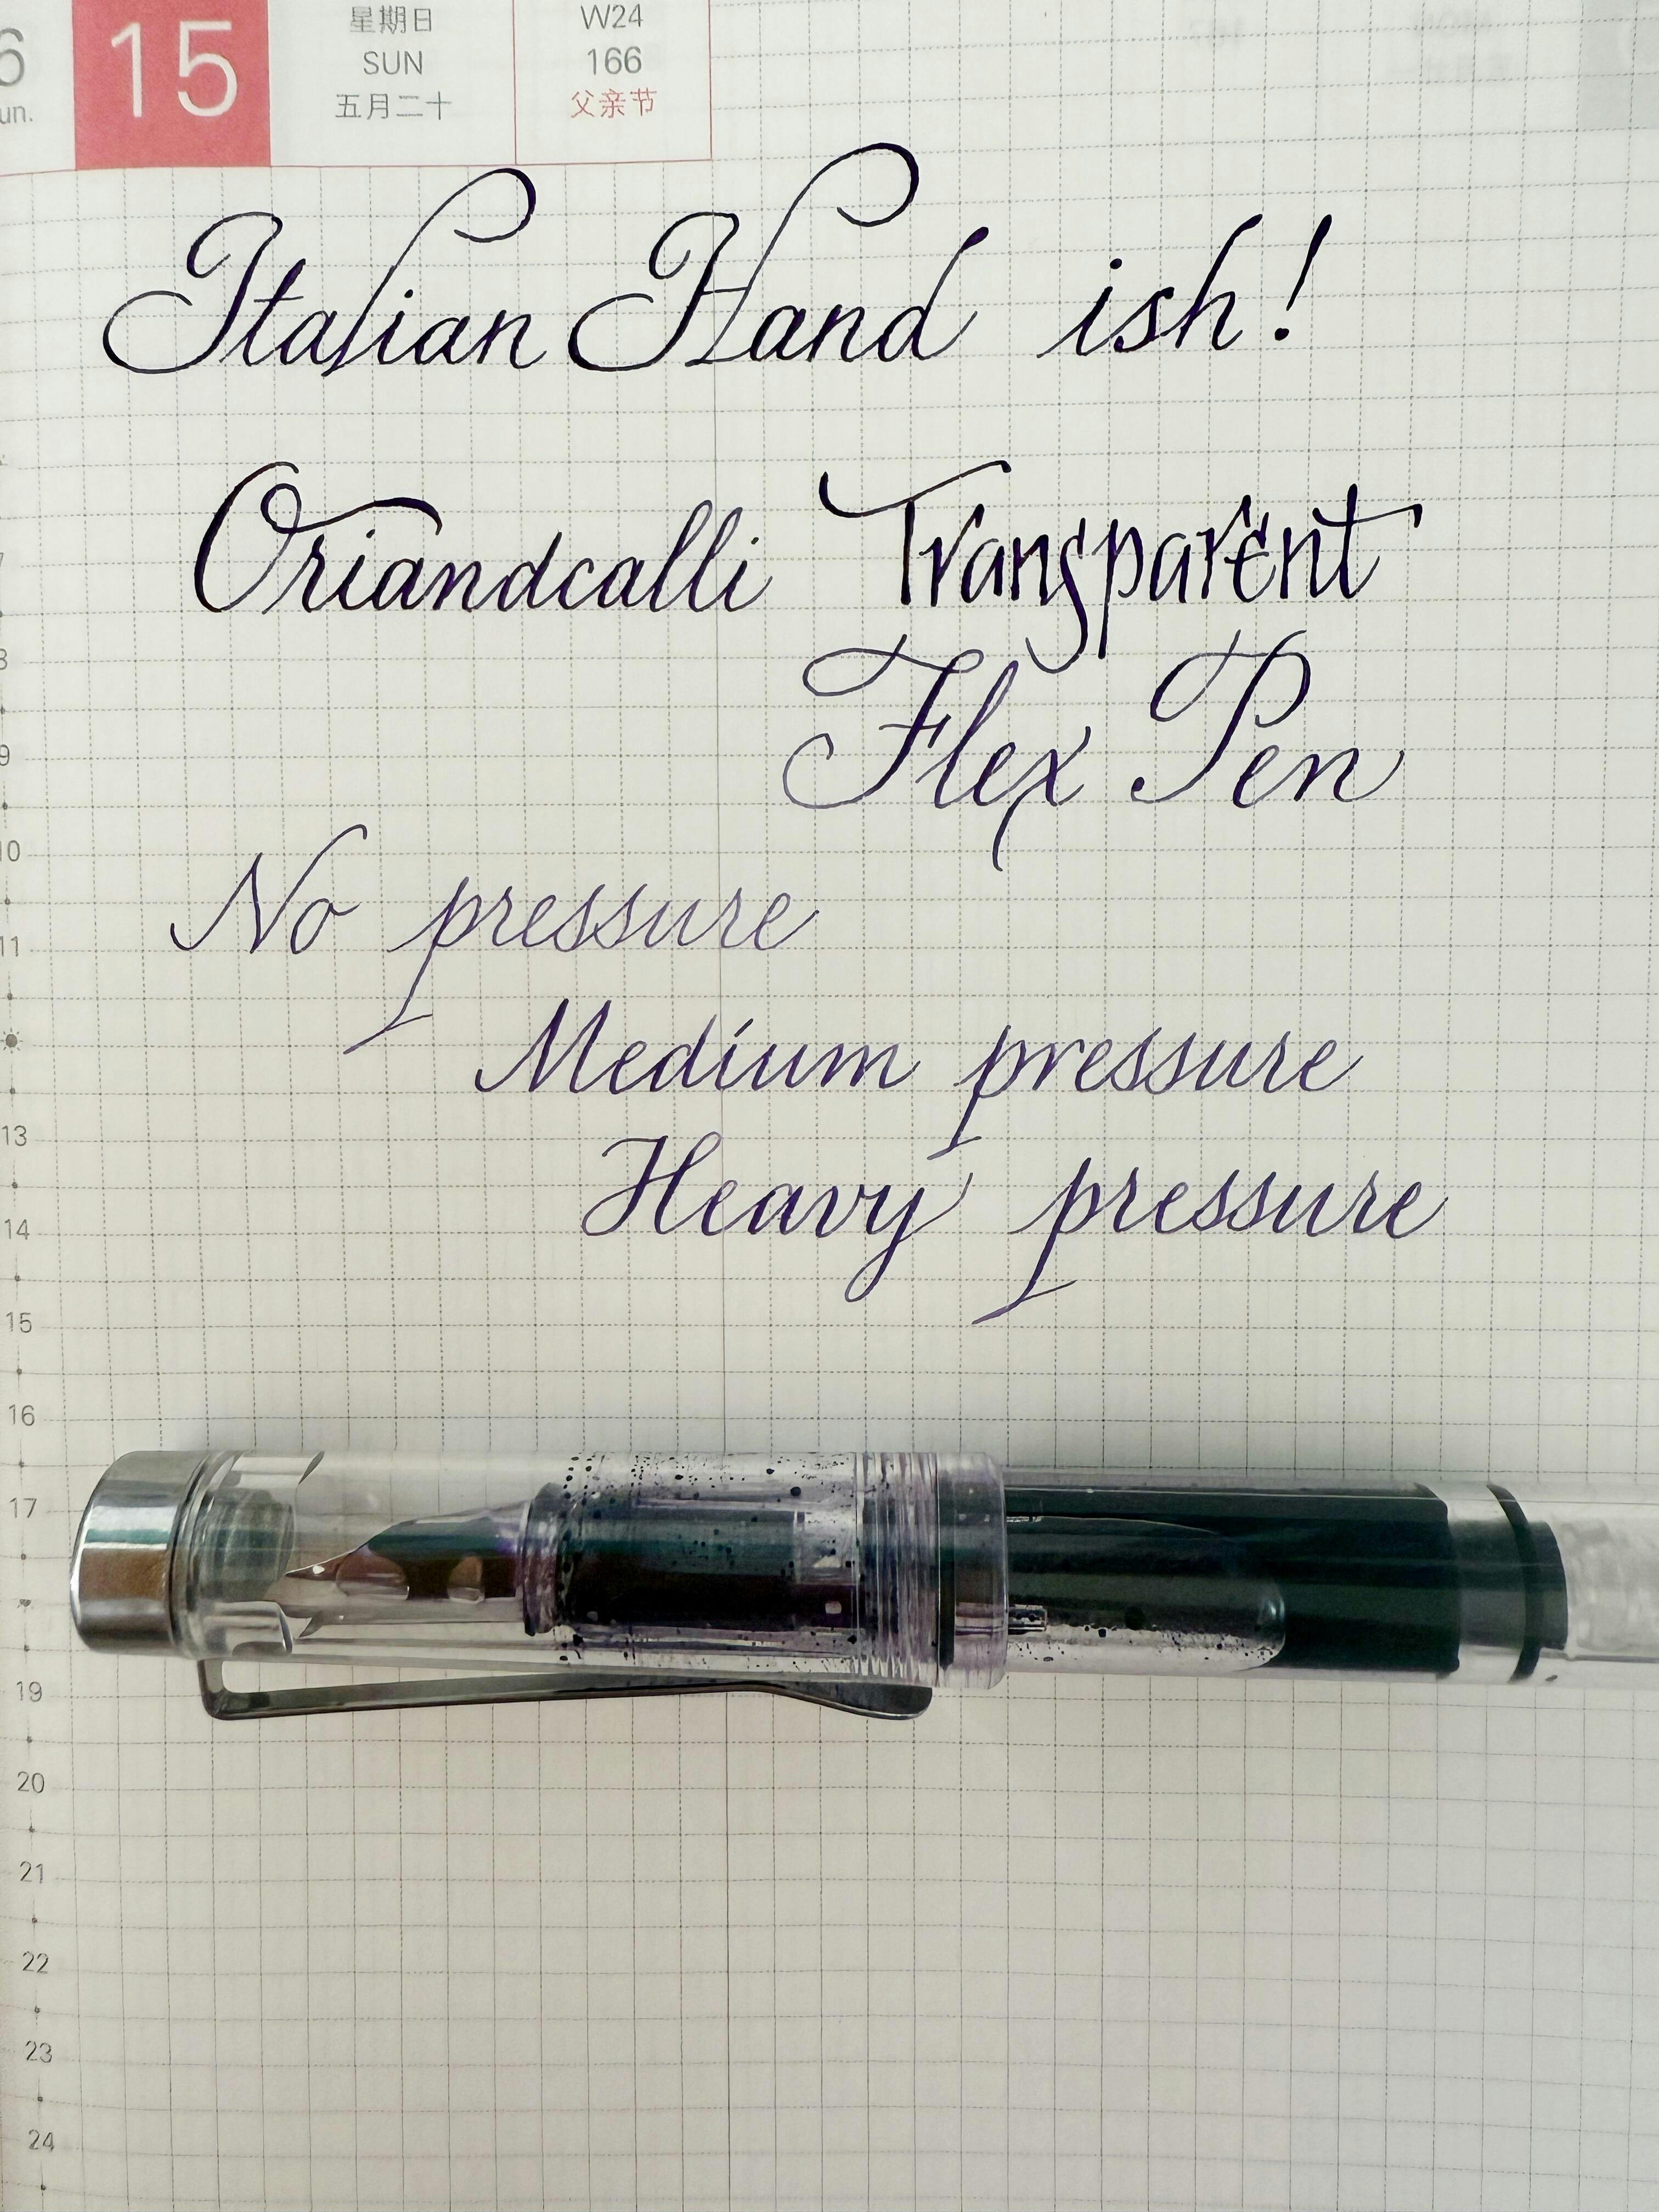 6 15 星期日 W24
un. SUN 166
五月二十 父亲节
Italian Hand ish!
Oriandcalli Transparent
Flex Pen
No pressure
Medium pressure
Heavy pressure
8
9
10
11
13
14
15
16
17
19
20
21
22
23
24